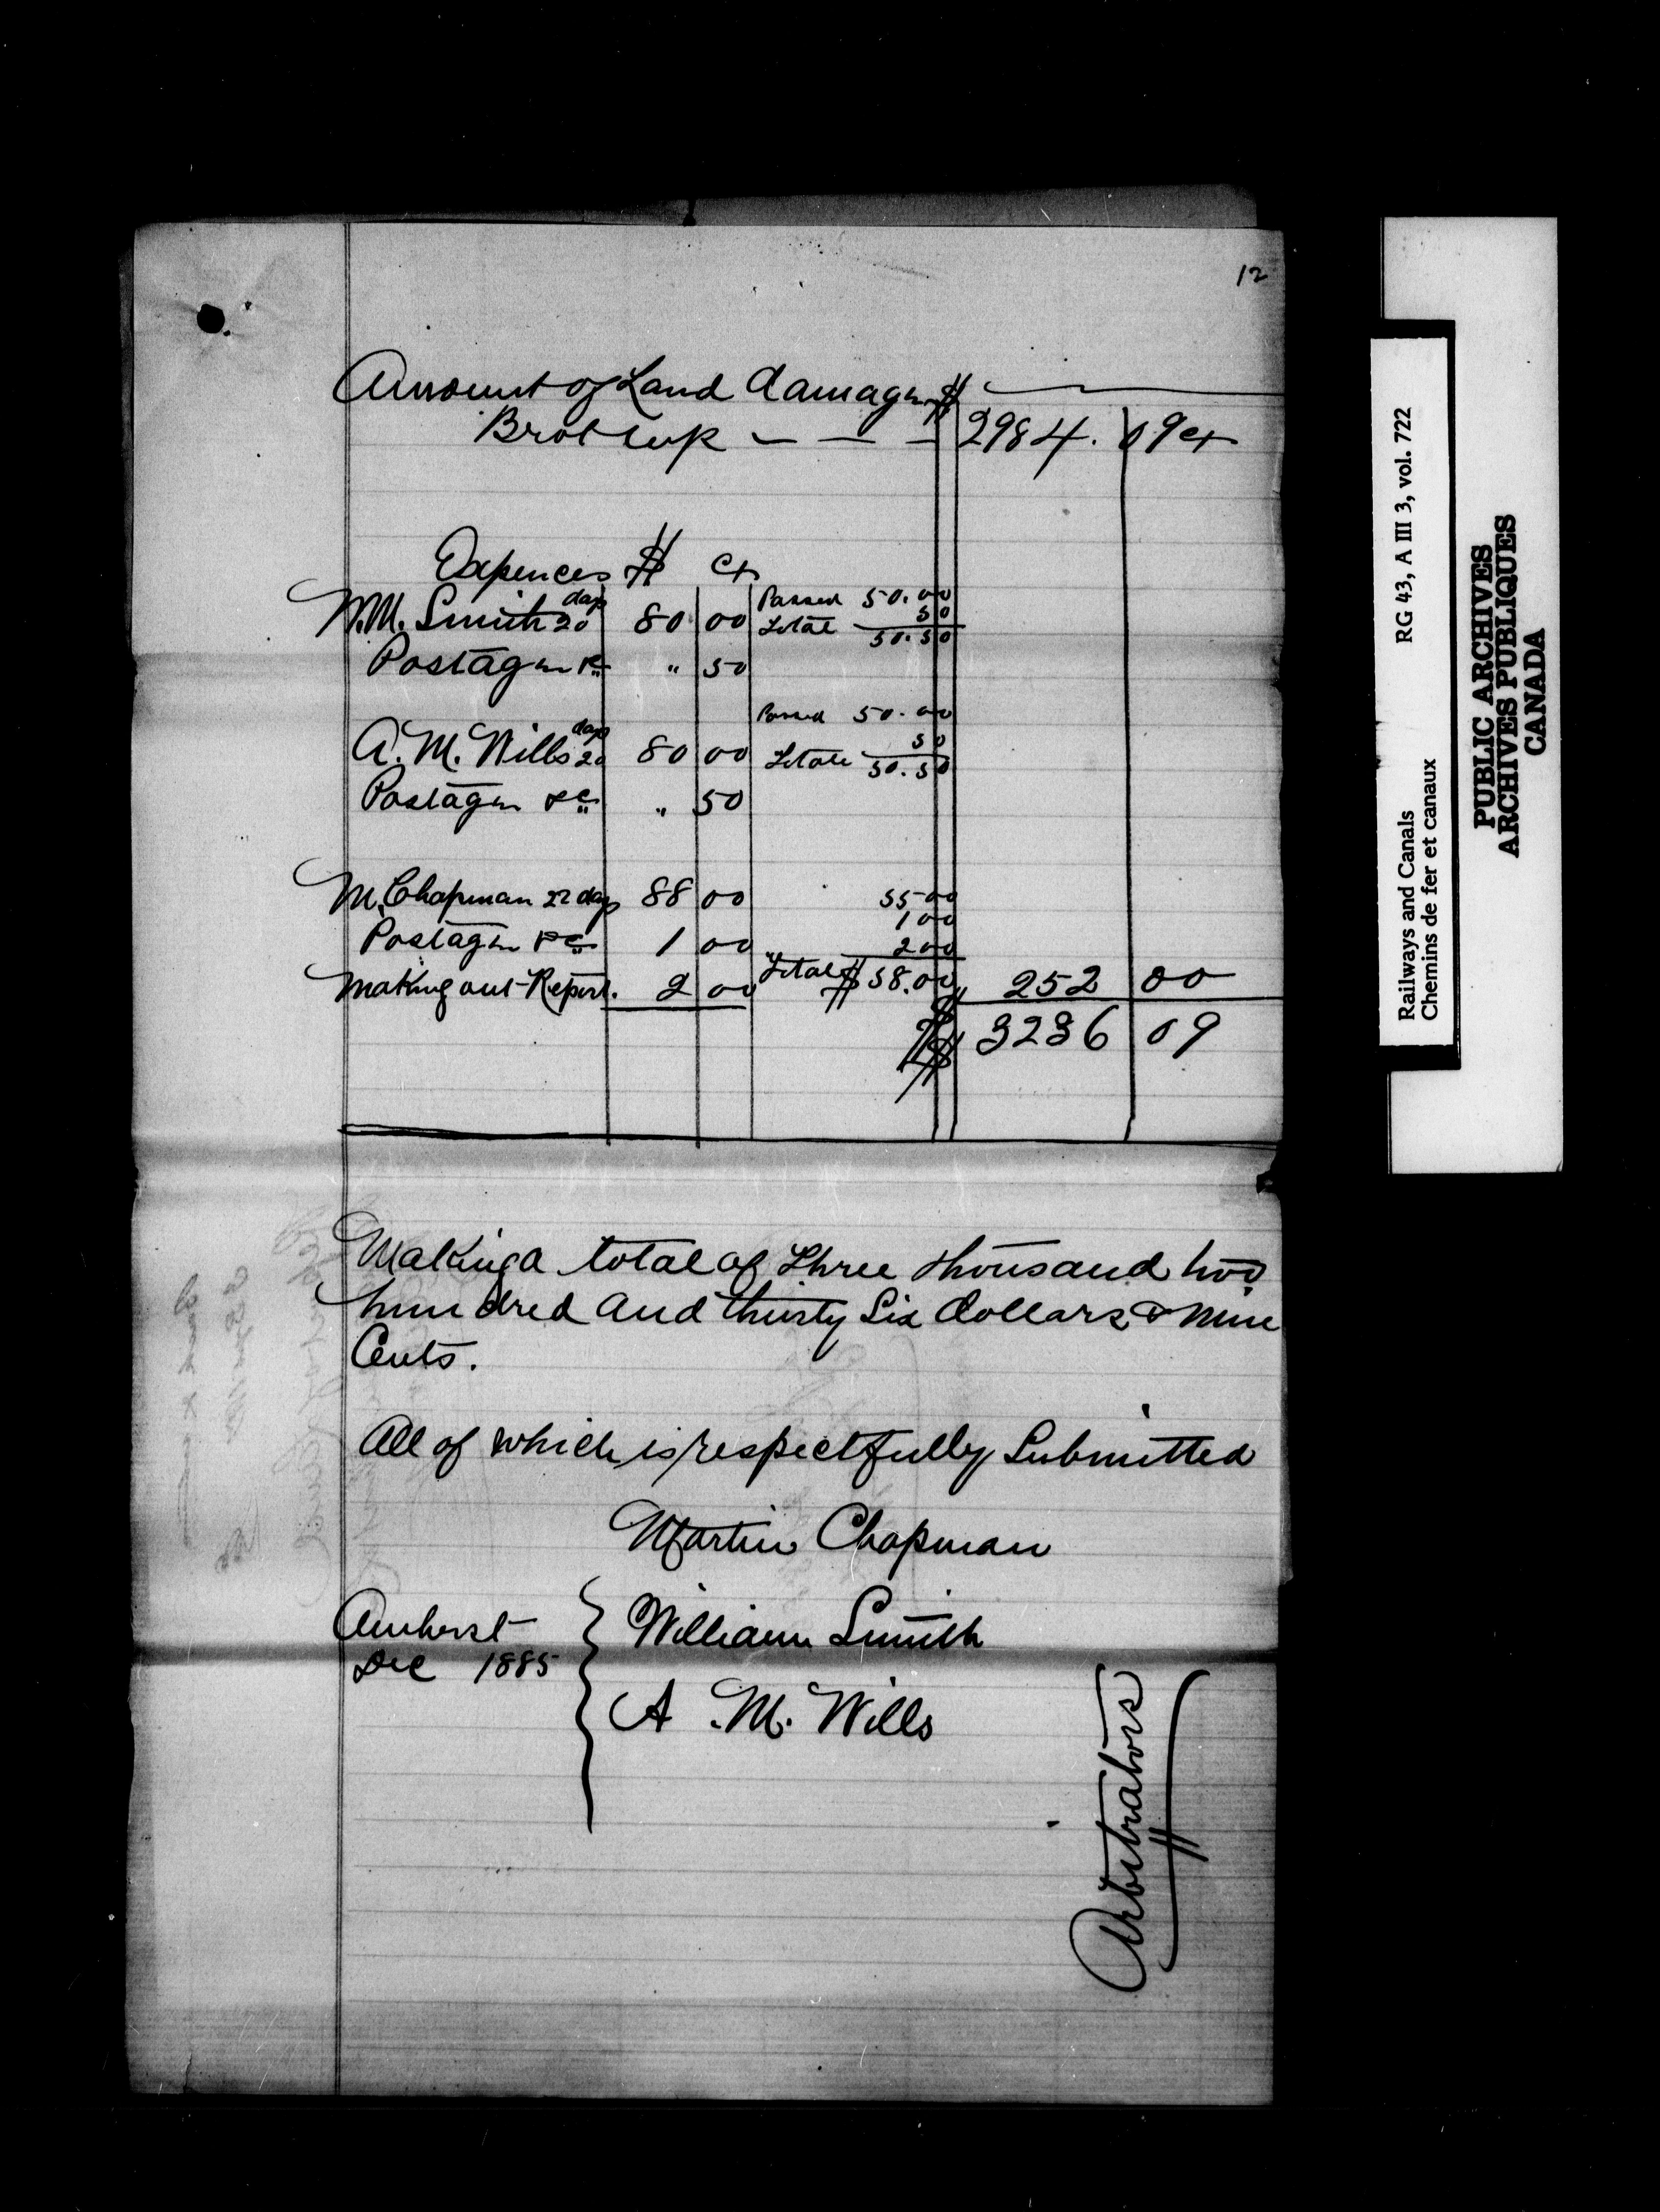 12
Amount of Land damages $
Brot up — — — 2984. 09 ct
Expences $ ct
Passed 50.00
W.M. Smith 20 days 80 00 50
Total 50.50
Postages &c " 50
Passed 50.00
A. M. Wills 20 days 80 00 50
Totale 50.50
Postages &c " 50
M. Chapman 22 days 88 00 55 00
Postages &c 1 00 1 00
2 00
Making out Report. 2 00 Total $ 58.00 252 00
$ 3236 09
Making a total of Three thousand two
hundred and thirty Six dollars & nine
Cents.
All of which is respectfully Submitted
Martin Chapman
Amherst William Smith
Dec 1885
A. M. Wills
Arbitrators
Railways and Canals RG 43, A III 3, vol. 722
Chemins de fer et canaux
PUBLIC ARCHIVES
ARCHIVES PUBLIQUES
CANADA